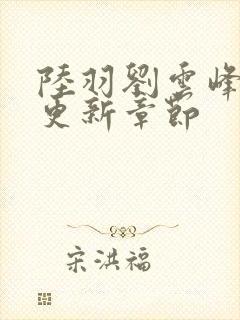 陸羽劉雲峰
更新章節
宋洪福